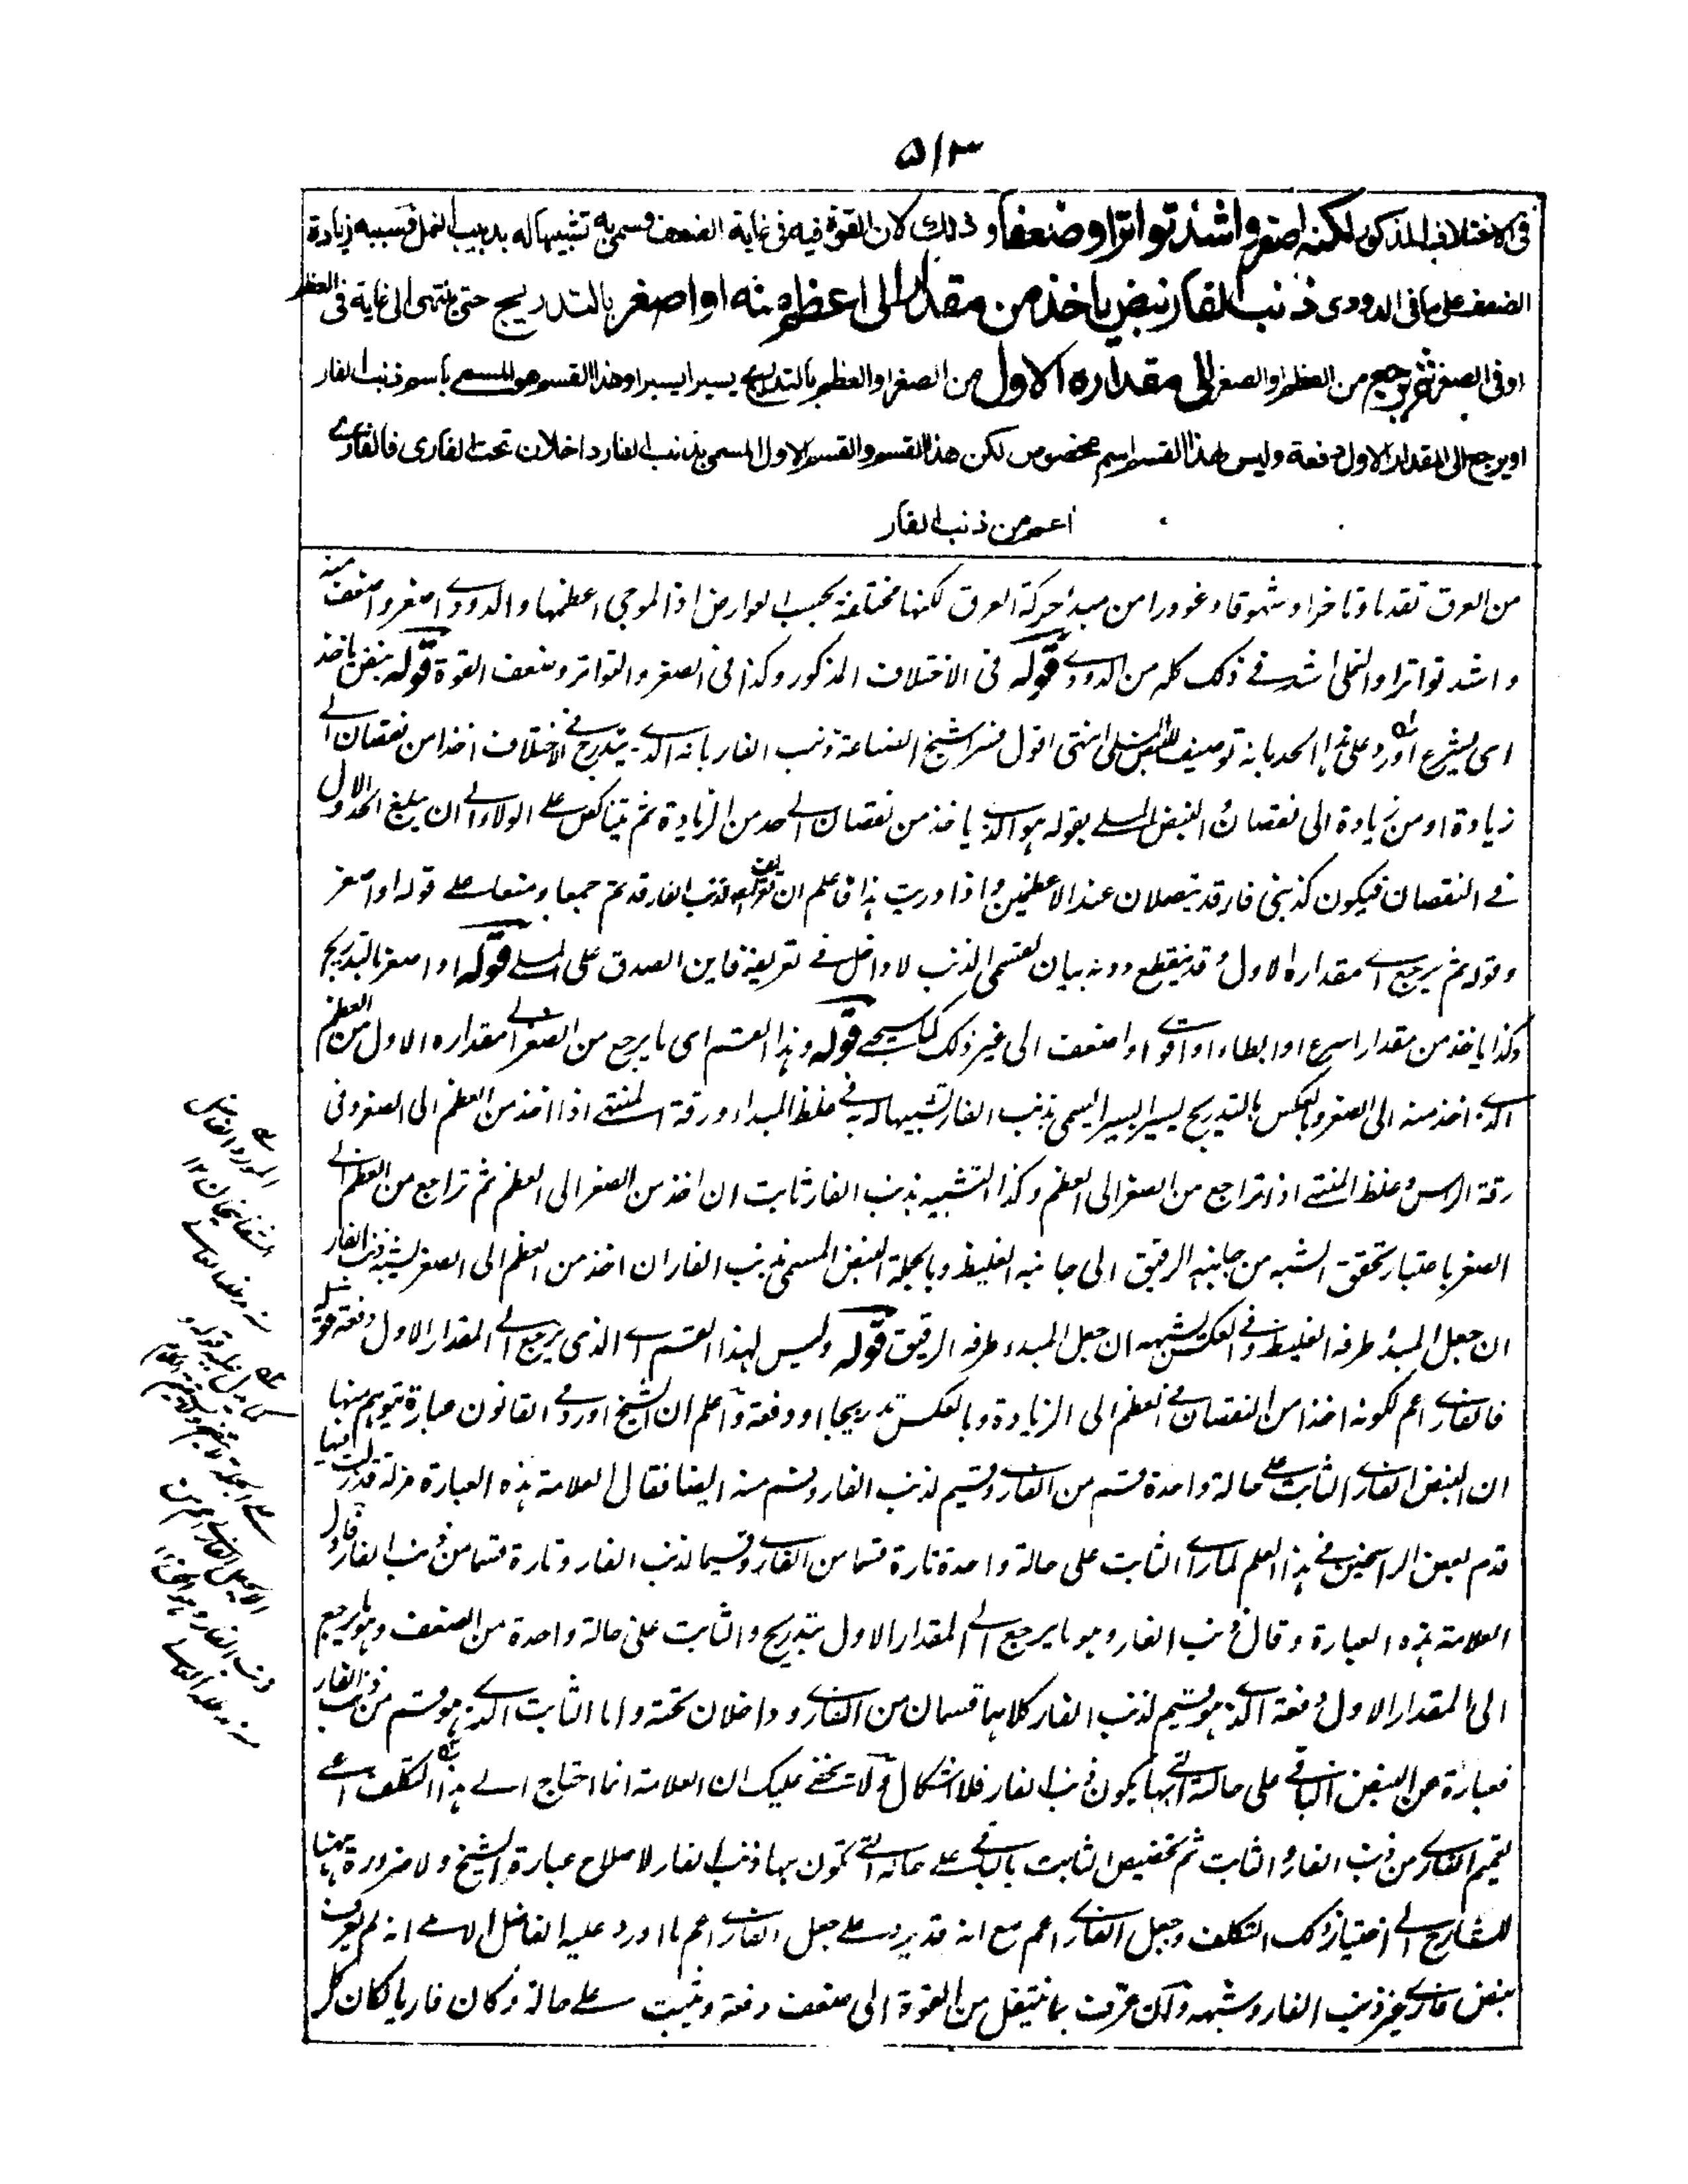 ۵۱۳
فی الاختلاف المذکور لکنه اصغر واشد تواترا وضعفا و ذلك لان القوة فیه فی غایة الضعف وسمی به تشبیها له بدبیب النمل فسببه زیادة
الضعف علی ما فی الدودی ذنب الفار نبض یاخذ من مقدار الی اعظم منه او اصغر بالتدریج حتی ینتهی الی غایة فی العظم
او فی الصغر ثم یرجع من العظم او الصغر الی مقداره الاول من الصغر او العظم بالتدریج یسیرا یسیرا وهذا القسم هو المسمی باسم ذنب الفار
او یرجع الی المقدار الاول دفعة ولیس لهذا القسم اسم مخصوص لکن هذا القسم والقسم الاول المسمی بذنب الفار داخلان تحت الفاری فالفاری
اعم من ذنب الفار
من العرق تقدما وتاخرا وشهوقا وغورا من مبدأ حرکة العرق لکنها مختلفة بحسب العوارض اذ الموجی اعظمها والدودی اصغر واضعف منه
واشد تواترا والنملی اشد فی ذلک کله من الدودی قوله فی الاختلاف المذکور وکذا فی الصغر والتواتر وضعف القوة قوله نبض یاخذ
ای یشرع اورد علی هذا الحد بانه توصیف للنبض المسلی انتهی اقول فسر الشیخ الصناعة ذنب الفار بانه الذی یتدرج فی الاختلاف اخذا من نقصان الی
زیادة او من زیادة الی نقصان والنبض المسلی بقوله هو الذی یاخذ من نقصان الی حد من الزیادة ثم یتناکس علی الولاء الی ان یبلغ الحد الاول
فی النقصان فیکون کذنبی فار قد یتصلان عند الاعظمین واذا دریت هذا فاعلم ان تعریف ذنب الفار قد تم جمعا ومنعا علی قوله او اصغر
وقوله ثم یرجع الی مقداره الاول وقد ینقطع دونه بیان لقسمی الذنب لا داخل فی تعریفه فاین الصدق علی المسلی قوله او اصغر بالتدریج
وکذا یاخذ من مقدار اسرع او ابطاء او اقوی او اضعف الی غیر ذلک کما سیجئ قوله وهذا القسم ای ما یرجع من الصغر الی مقداره الاول من العظم
الذی اخذ منه الی الصغر وبالعکس بالتدریج یسیرا یسیرا یسمی بذنب الفار تشبیها له به فی غلظ المبداء ورقة المنتهی اذا اخذ من العظم الی الصغر وفی
رقة الراس وغلظ المنتهی اذا تراجع من الصغر الی العظم وکذا التشبیه بذنب الفار ثابت ان اخذ من الصغر الی العظم ثم تراجع من العظم الی
الصغر باعتبار تحقق الشبه من جانبه الرقیق الی جانبه الغلیظ وبالجملة النبض المسمی بذنب الفار ان اخذ من العظم الی الصغر یشبه ذنب الفار
ان جعل المبدء طرفه الغلیظ وفی العکس یشبهه ان جعل المبدء طرفه الرقیق قوله ولیس لهذا القسم ای الذی یرجع الی المقدار الاول دفعة قوله
فالفاری اعم لکونه اخذا من النقصان فی العظم الی الزیادة وبالعکس تدریجا او دفعة واعلم ان الشیخ اورد فی القانون عبارة یتوهم منها
ان النبض الفاری الثابت علی حالة واحدة قسم من الفاری وقسیم لذنب الفار وقسم منه ایضا فقال العلامة هذه العبارة مزلة قد زلت فیها
قدم بعض الراسخین فی هذا العلم لما رای الثابت علی حالة واحدة تارة قسما من الفاری وقسیما لذنب الفار وتارة قسما من ذنب الفار واول
العلامة هذه العبارة وقال ذنب الفار وهو ما یرجع الی المقدار الاول بتدریج والثابت علی حالة واحدة من الضعف وهو ما یرجع
الی المقدار الاول دفعة الذی هو قسیم لذنب الفار کلاهما قسمان من الفاری وداخلان تحته واما الثابت الذی هو قسم من ذنب الفار
فعبارة عن النبض الباقی علی حالة التی بها یکون ذنب الفار فلا اشکال ولا یخفی علیک ان العلامة انما احتاج الی هذا التکلف ای
تعمیم الفاری من ذنب الفار والثابت ثم تخصیص الثابت بالباقی علی حاله التی تکون بها ذنب الفار لاصلاح عبارة الشیخ ولا ضرورة ههنا
للشارح الی اختیار ذلک التکلف وجعل الفاری اعم مع انه قد یرد علی جعل الفاری اعم ما اورد علیه الفاضل انه لم یعرف
نبض فاری غیر ذنب الفار وشبهه ولکن عرفت بما ینتقل من القوة الی ضعف دفعة ویثبت علی حالة وکان فاریا لکان کل